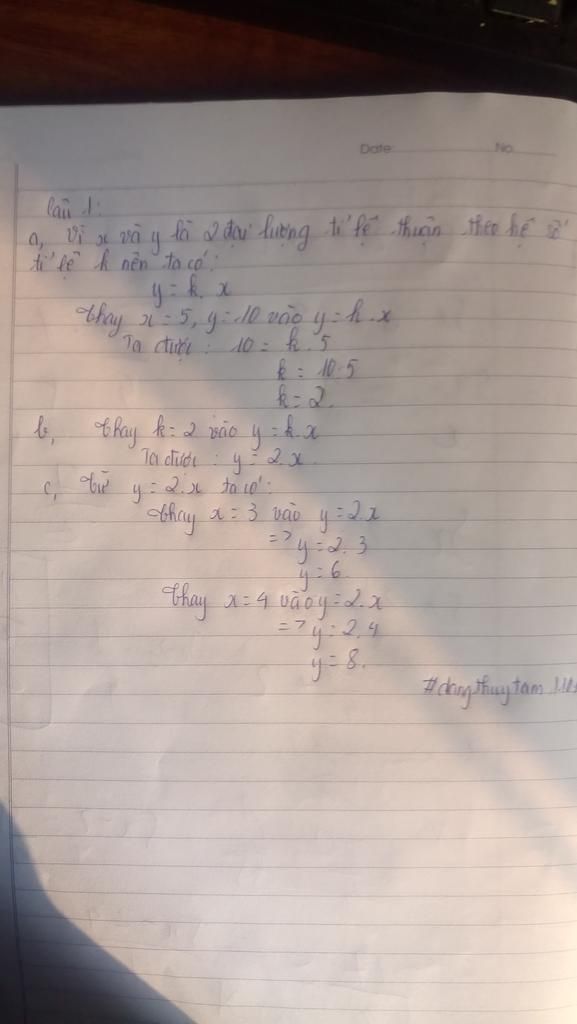 Date No
Câu 1:
a, Vì x và y là 2 đại lượng tỉ lệ thuận theo hệ số
tỉ lệ k nên ta có:
y = k. x
Thay x = 5, y = 10 vào y = k.x
Ta được: 10 = k.5
k = 10:5
k = 2.
b, Thay k = 2 vào y = k.x
Ta được: y = 2.x
c, Từ y = 2.x ta có:
Thay x = 3 vào y = 2.x
=> y = 2.3
y = 6.
Thay x = 4 vào y = 2.x
=> y = 2.4
y = 8.